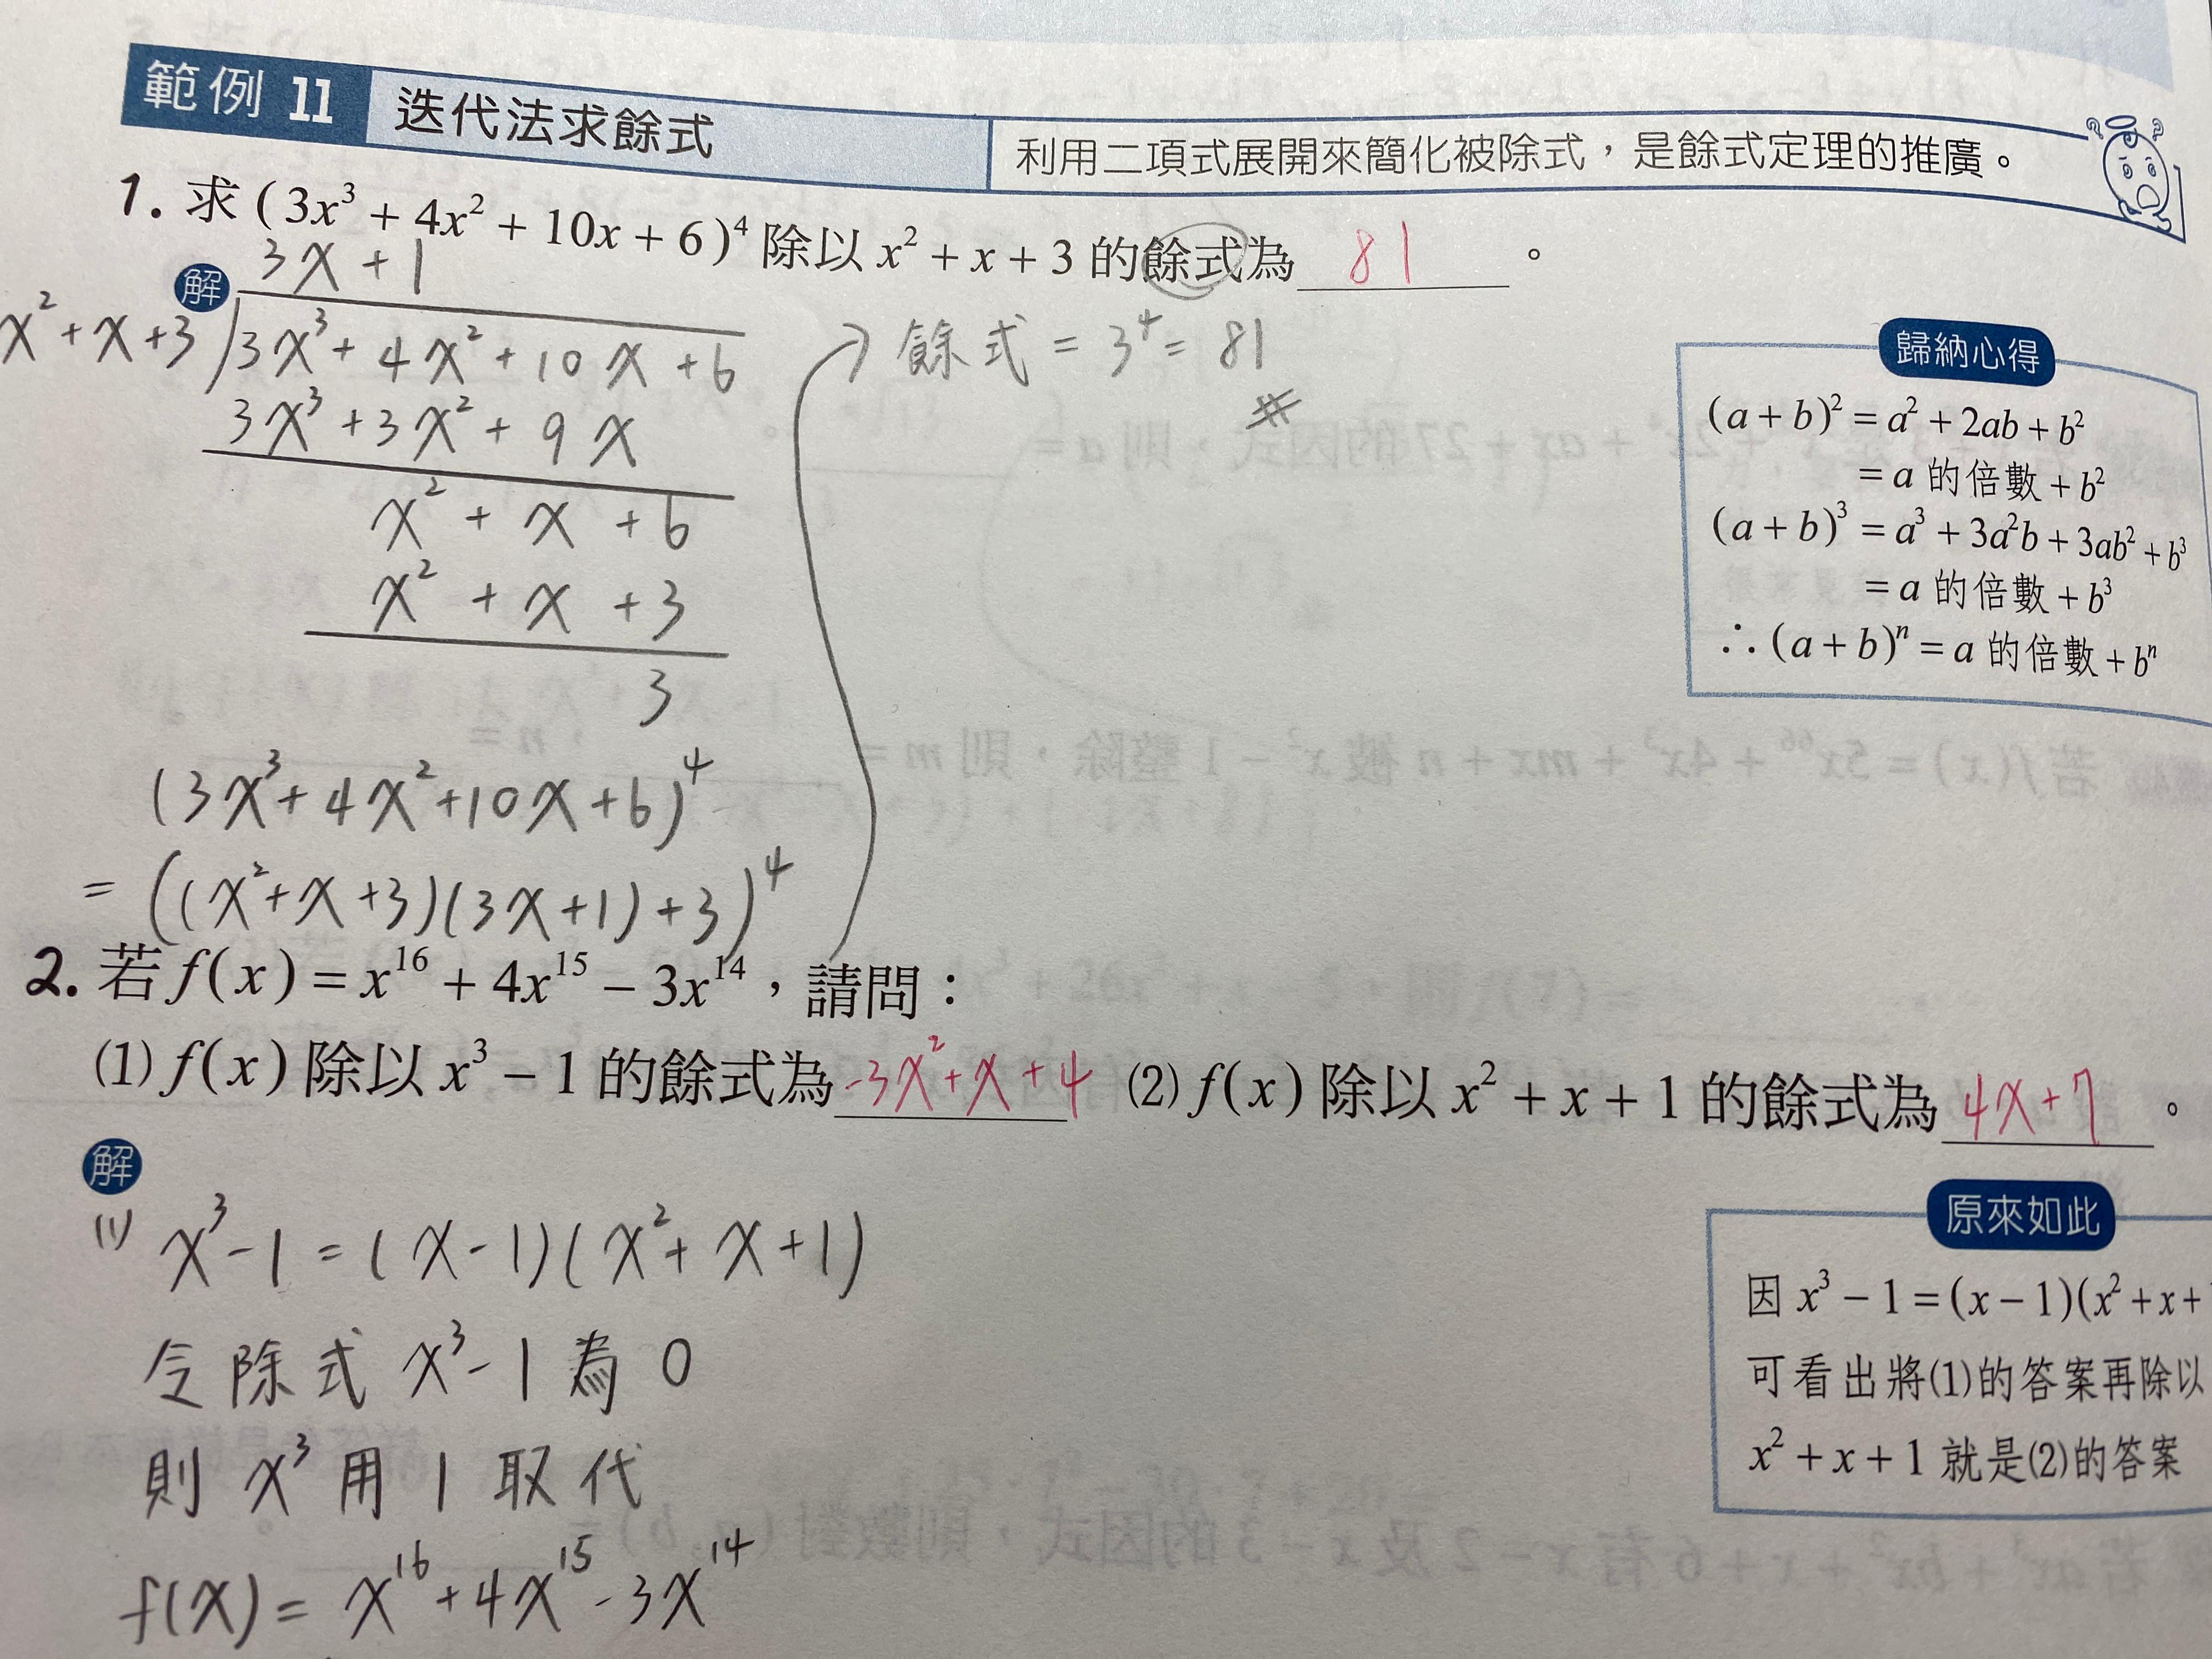 範例 11 迭代法求餘式 利用二項式展開來簡化被除式，是餘式定理的推廣。
1. 求 (3x³ + 4x² + 10x + 6)⁴ 除以 x² + x + 3 的餘式為 81 。
解
3x + 1
x² + x + 3 ) 3x³ + 4x² + 10x + 6
3x³ + 3x² + 9x
x² + x + 6
x² + x + 3
3
(3x³ + 4x² + 10x + 6)⁴
= ((x² + x + 3)(3x + 1) + 3)⁴
→ 餘式 = 3⁴ = 81
#
歸納心得
(a + b)² = a² + 2ab + b²
= a 的倍數 + b²
(a + b)³ = a³ + 3a²b + 3ab² + b³
= a 的倍數 + b³
∴ (a + b)ⁿ = a 的倍數 + bⁿ
2. 若 f(x) = x¹⁶ + 4x¹⁵ − 3x¹⁴，請問：
(1) f(x) 除以 x³ − 1 的餘式為 -3x² + x + 4 (2) f(x) 除以 x² + x + 1 的餘式為 4x + 7 。
解
(1) x³ - 1 = (x - 1)(x² + x + 1)
令除式 x³ - 1 為 0
則 x³ 用 1 取代
f(x) = x¹⁶ + 4x¹⁵ - 3x¹⁴
原來如此
因 x³ − 1 = (x − 1)(x² + x +
可看出將(1)的答案再除以
x² + x + 1 就是(2)的答案